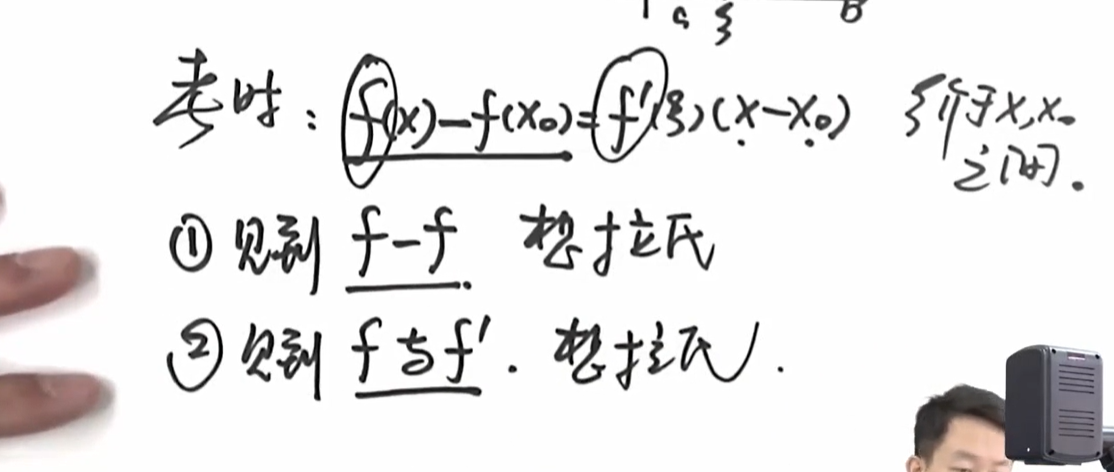 a ξ B
考时: f(x)-f(x₀)=f'(ξ)(x-x₀) ξ介于x,x₀
之间.
① 见到 f-f. 想拉氏
② 见到 f与f'. 想拉氏.